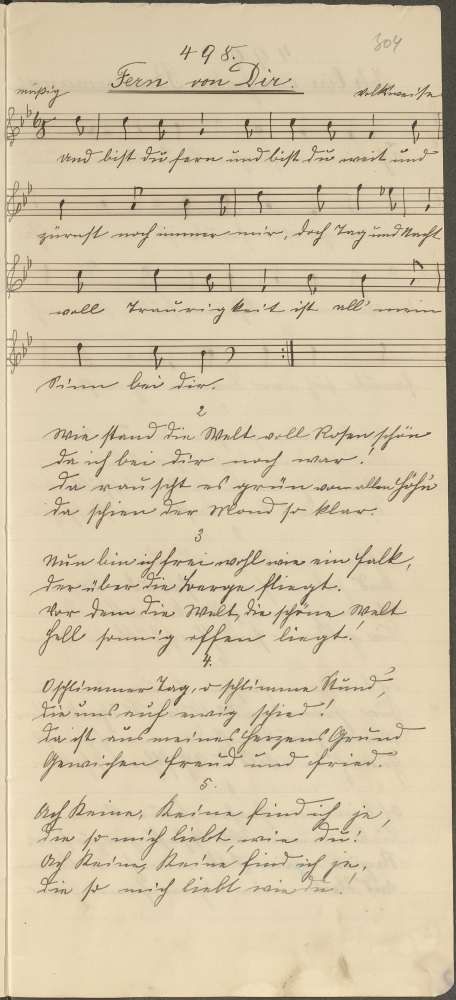 304
498.
Fern von Dir.
mäßig Volksweise
und bist du fern und bist du weit und
zürnst noch immer mir, doch Tag und Nacht
voll Traurigkeit ist all' mein
Sinn bei dir.
2
Wie stand die Welt voll Rosen schön
da ich bei dir noch war!
da rauscht es grün von allen Höhn
da schien der Mond so klar.
3
Nun bin ich frei wohl wie ein Falk,
der über die Berge fliegt.
vor dem die Welt, die schöne Welt
hell sonnig offen liegt.
4.
O schlimmer Tag, o schlimme Stund,
die uns auf ewig schied!
da ist aus meines Herzens Grund
Gewichen Freud und Fried.
5.
Ach Keine, Keine find ich je,
die so mich liebt, wie du!
Ach Keine, Keine find ich je,
die so mich liebt wie du!